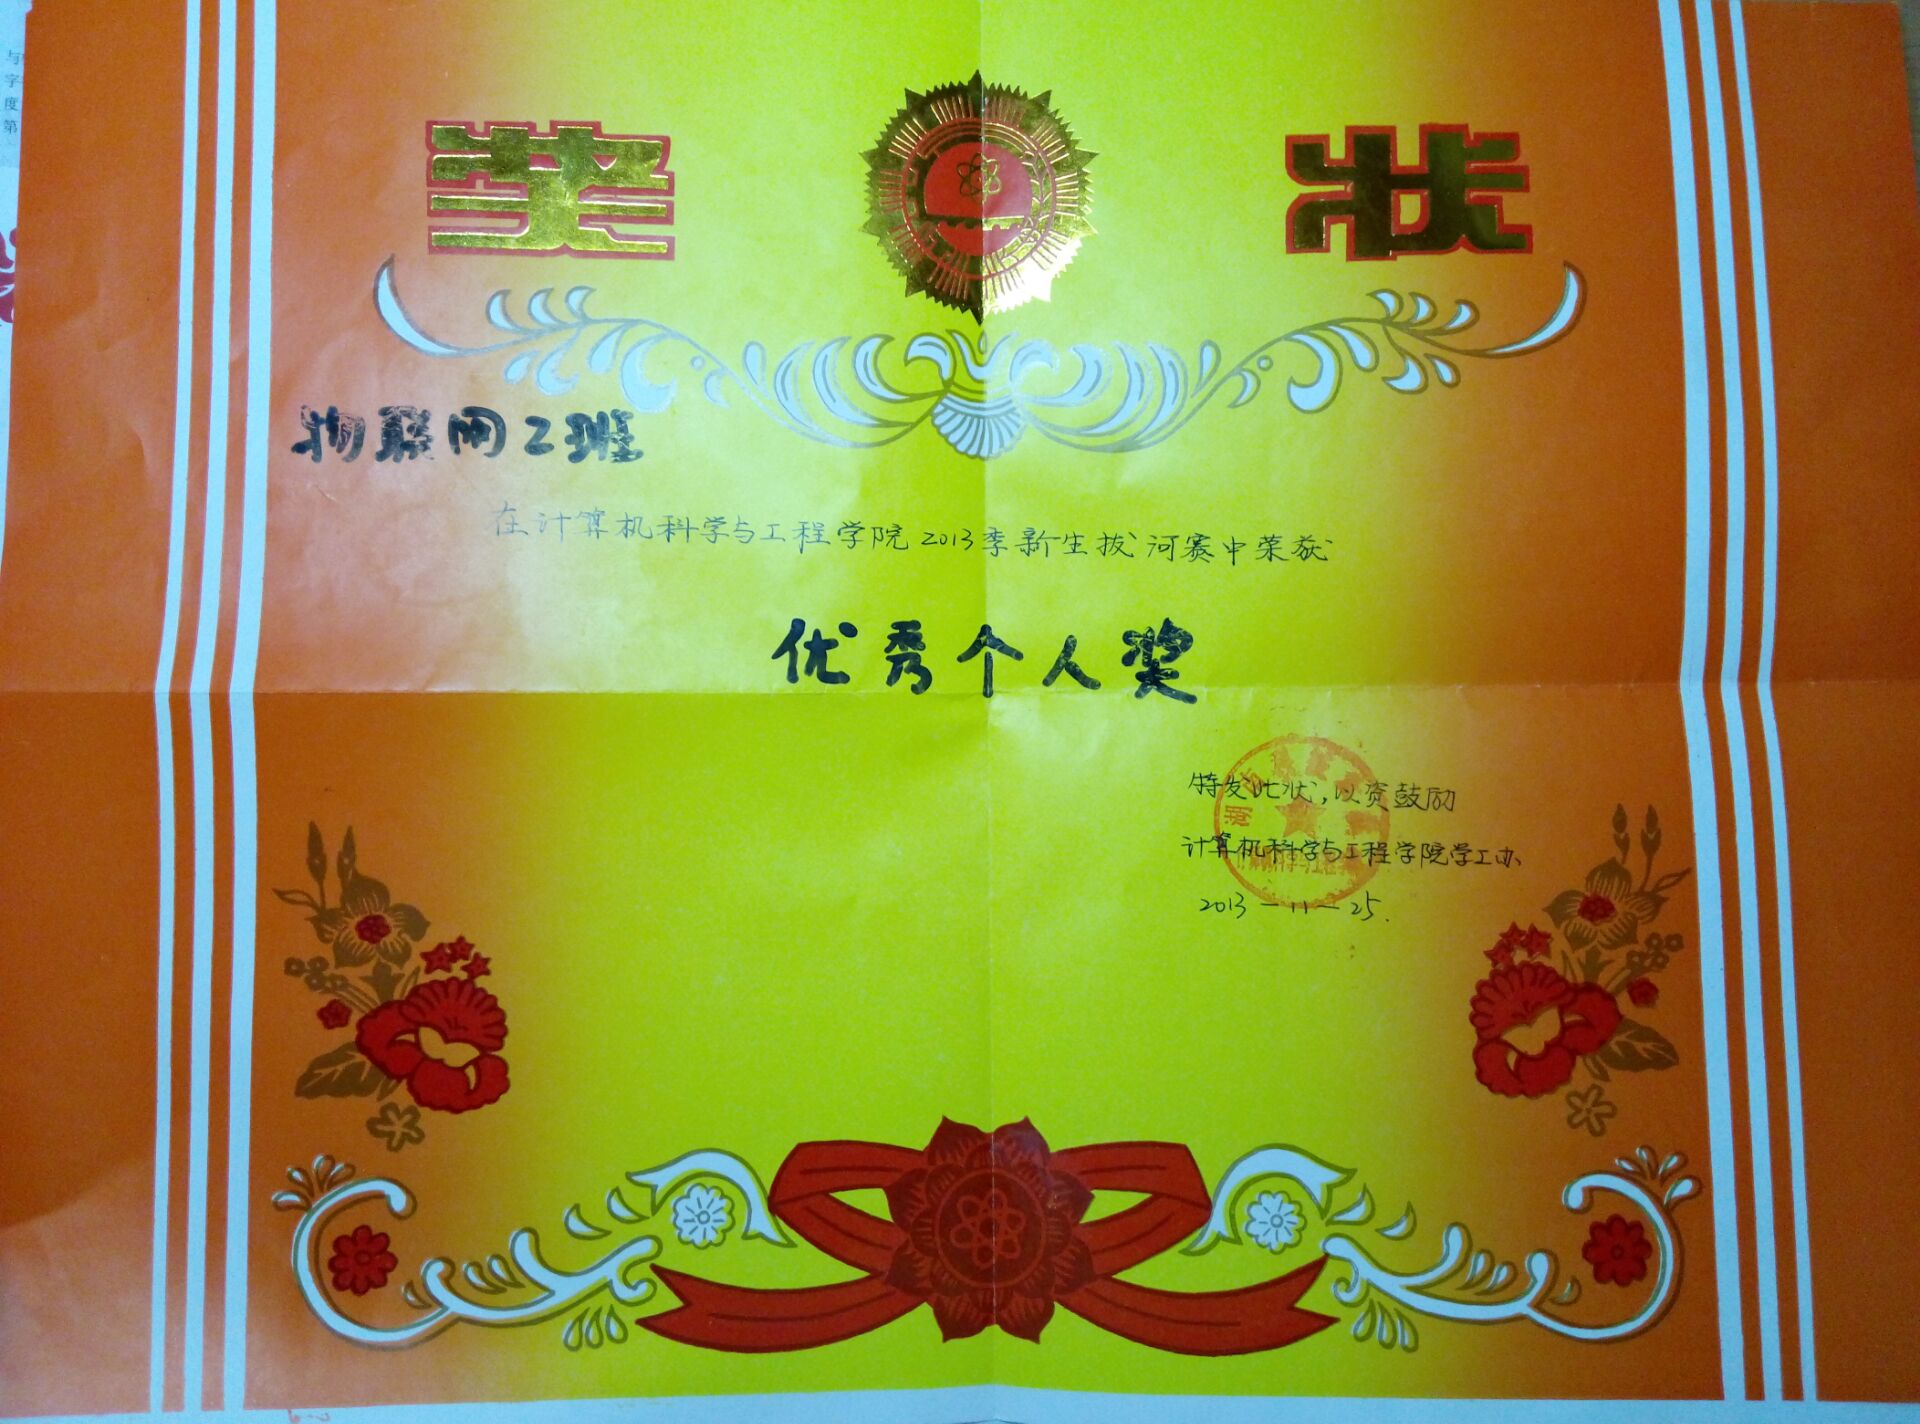 奖状
物联网2班
在计算机科学与工程学院2013季新生拔河赛中荣获
优秀个人奖
特发此状,以资鼓励
计算机科学与工程学院学工办
2013-11-25.
与
字
度
第